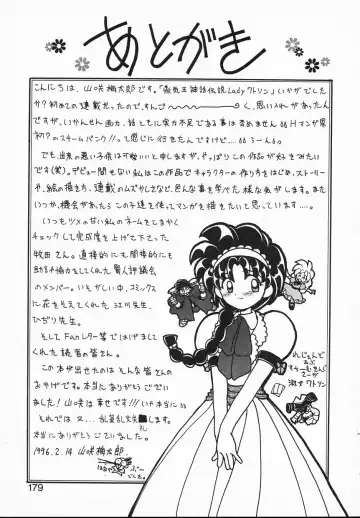 あとがき
こんにちは、山咲梅太郎です。「蒸気王神話伝説Ladyワトソン」いかがでした
か?初めての連載だったので、すんで〜〜〜〜く、思い入れがあったん
ですが、いかんせん画力、話ともに実力不足である事は否めません
初?のスチームパンク!!って感じに行きたんですけど…
でも、出来の悪い子供は可愛いと申しますが、やっぱりこの作品が好きみたい
です(笑)。デビュー間もない私はこの作品でキャラクターの作り方をはじめ、ストーリー
や、絵の描き方、連載のムズかしさなど、色んな事を学べた様な気がします。また
いつか、機会があったらこの子達を使ってマンガを描きたいと思っています…。
いつもツメのない私のネームをこまかく
チェックして完成度を上げて下さった
牧田さん。直接的にも間接的にも
助け 協力をしてくれた賢人評議会
のメンバー。いそがしい中、コミックス
に花をそえてくれた江川先生、
ひぢり先生。
そしてFanレター等ではげまして
くれた読者の皆さん。
この本が出せたのはそんな皆さんの
おかげです。本当にありがとうござい
ました!山咲は幸せです!!
それでは又…乱筆乱文 します。
本当にありがとうございました。
1996.2.14 山咲梅太郎
でした。
れじぇんど
おぶ
すちーむきんぐ
淑女ワトソン
179